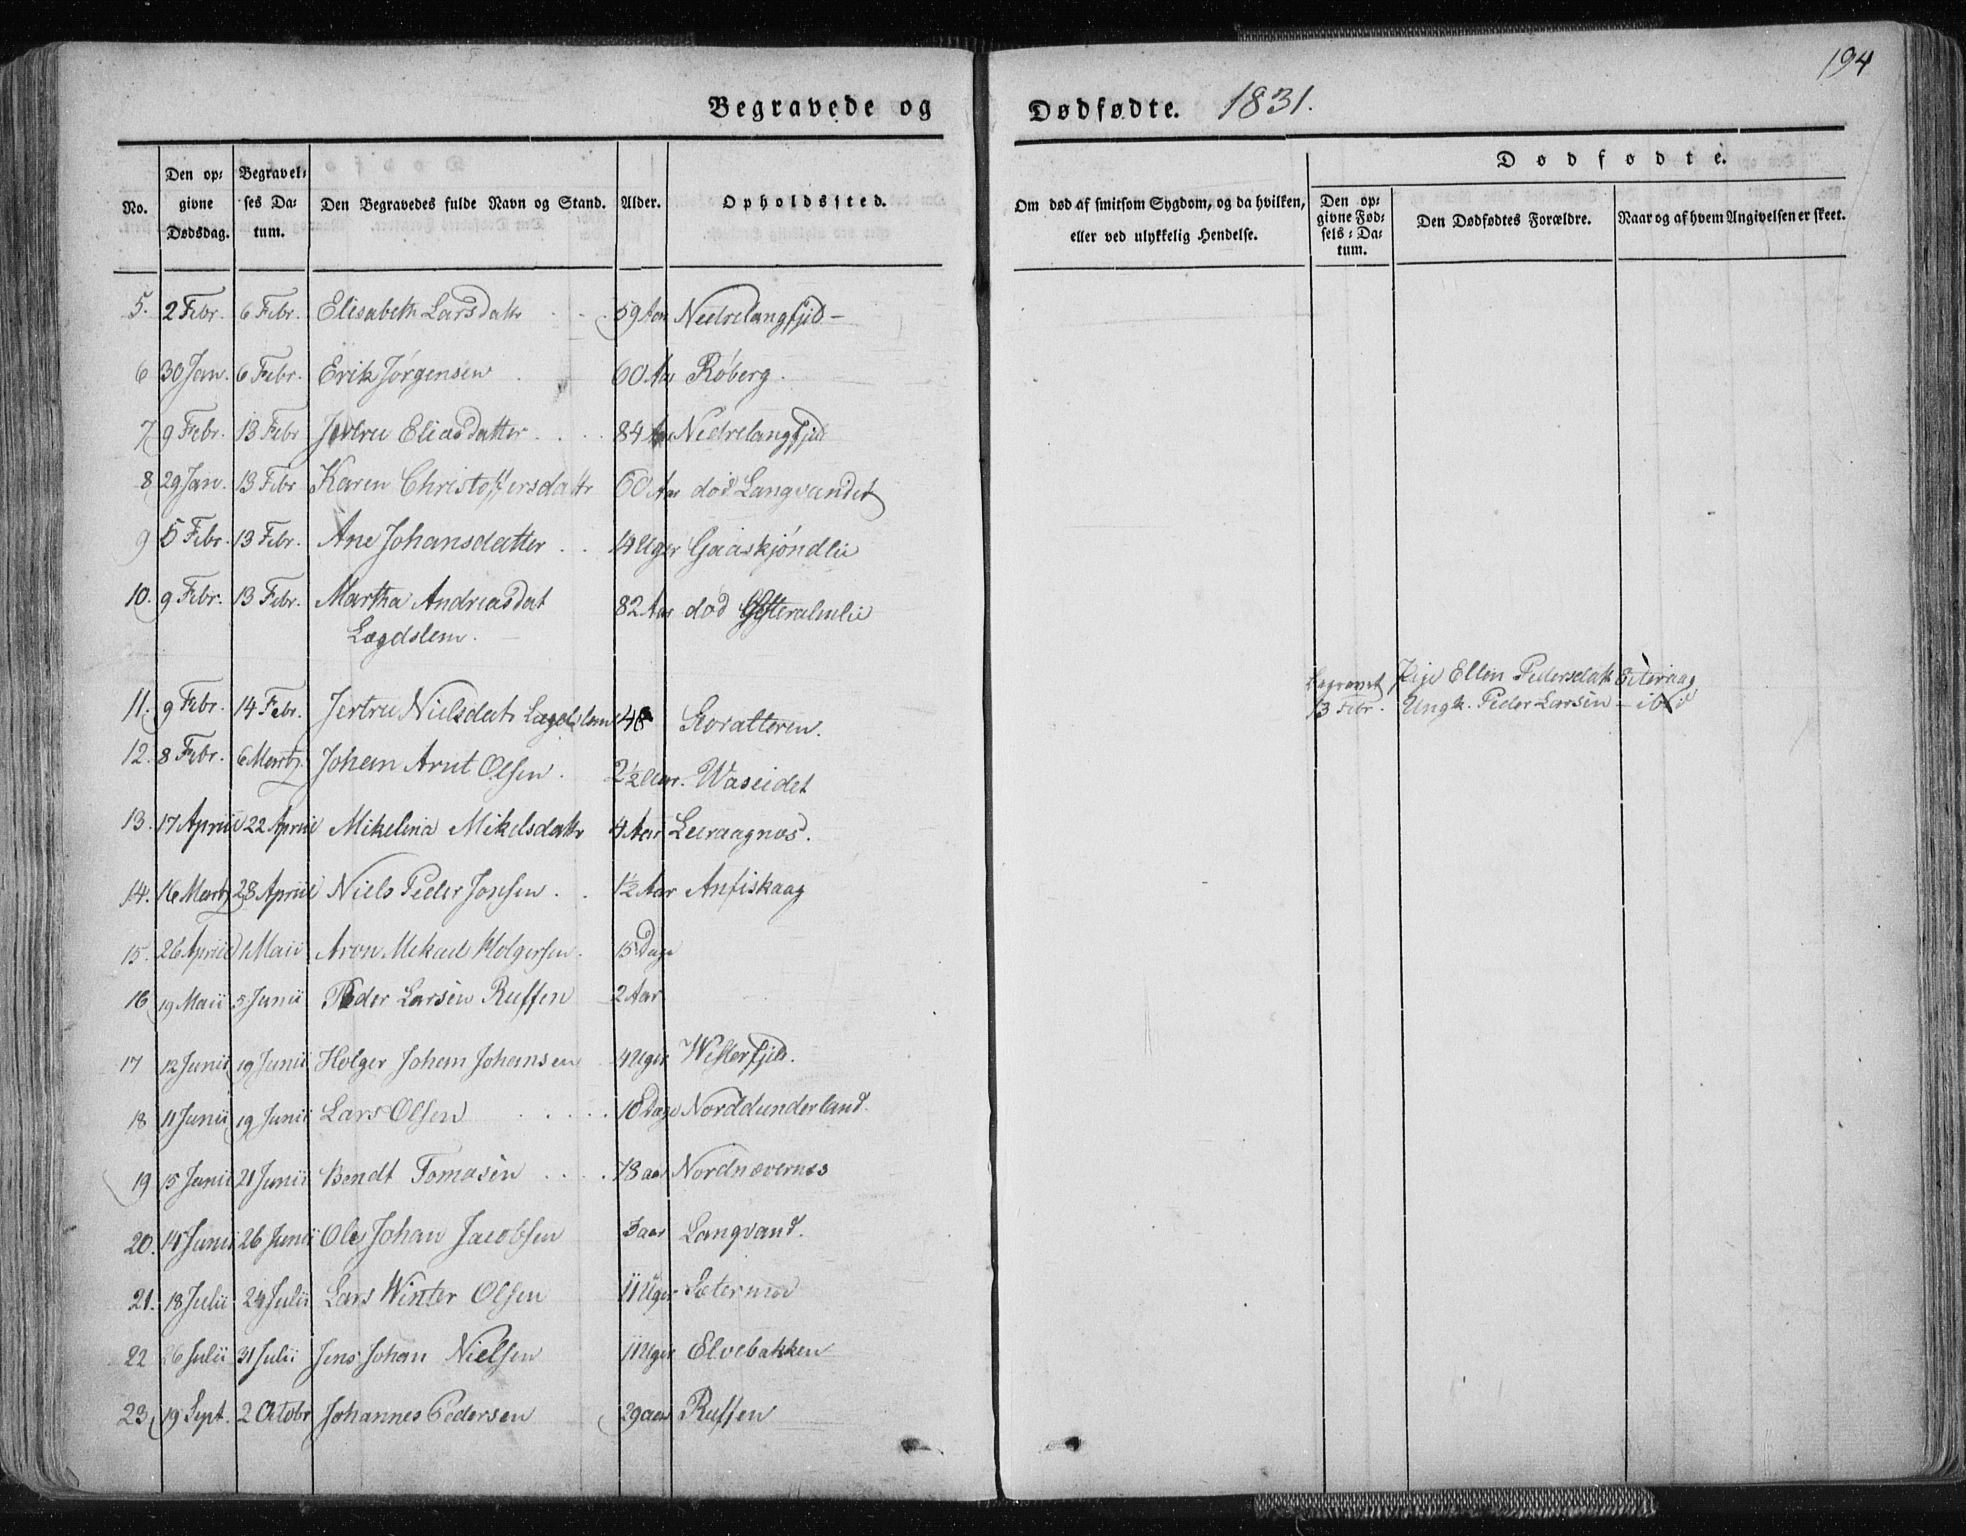 194
Begravede og Dødfødte. 1831.
No. Den op- givne Dødsdag. Begravel- ses Da- tum. Den Begravedes fulde Navn og Stand. Alder. Opholdssted.
Om død af smitsom Sygdom, og da hvilken, eller ved ulykkelig Hendelse.
Dødfødte.
Den op- givne Fød- sels-Da- tum. Den Dødfødtes Forældre. Naar og af hvem Angivelsen er skeet.
5. 2 Febr. 6 Febr. Elisabeth Larsdatr 59 Aar Nedrelangfjld
6 30 Jan. 6 Febr. Erik Jørgensen 60 Aar Røberg.
7 9 Febr. 13 Febr Jertru Eliasdatter 84 Aar Nedrelangfjld
8 29 Jan. 13 Febr Karen Christoffersdatr 60 Aar død Langvandet
9 5 Febr. 13 Febr. Ane Johansdatter 14 Uger Gaaskjøndlie
10. 9 Febr. 13 Febr. Martha Andreasdat 82 Aar død
Lægdslem.
11. 9 Febr. 14 Febr. Jertru Nielsdatr Lægdslem 48 Storatteren.
begravet 13 Febr. Pige Ellen Pedersdatr
Ungk. Peder Larsen - ibid
12. 8 Febr. 6 Martz Johan Arnt Olsen. 2½ Aar. Waseidet
13. 17 Apriil 22 Apriil Mikelina Mikelsdatr 4 Aar Leeraagnæs.
14. 16 Martz 28 Apriil Niels Peder Jonsen 1½ Aar Anfiskaag
15. 26 Apriil 1 Maii Aron Mekael Holgersen. 15 Dage
16 19 Maii 5 Junii Peder Larsen Ruffen 2 Aar
17 12 Junii 19 Junii Holger Johan Johansen 4 Uger Westerfjeld.
18 11 Junii 19 Junii Lars Olsen 10 Dage Norddunderland.
19 15 Junii 21 Junii Bendt Tomasen 78 aar Nordnævernes
20. 14 Junii 26 Junii Ole Johan Jacobsen 3 aar Langvand.
21. 18 Julii 24 Julii Lars Winter Olsen 11 Uger Sætermoe
22 26 Julii 31 Julii Jens Johan Nielsen 11 Uger Elvebakken
23. 19 Sept. 2 Octobr Johannes Pedersen 29 aar Ruffen